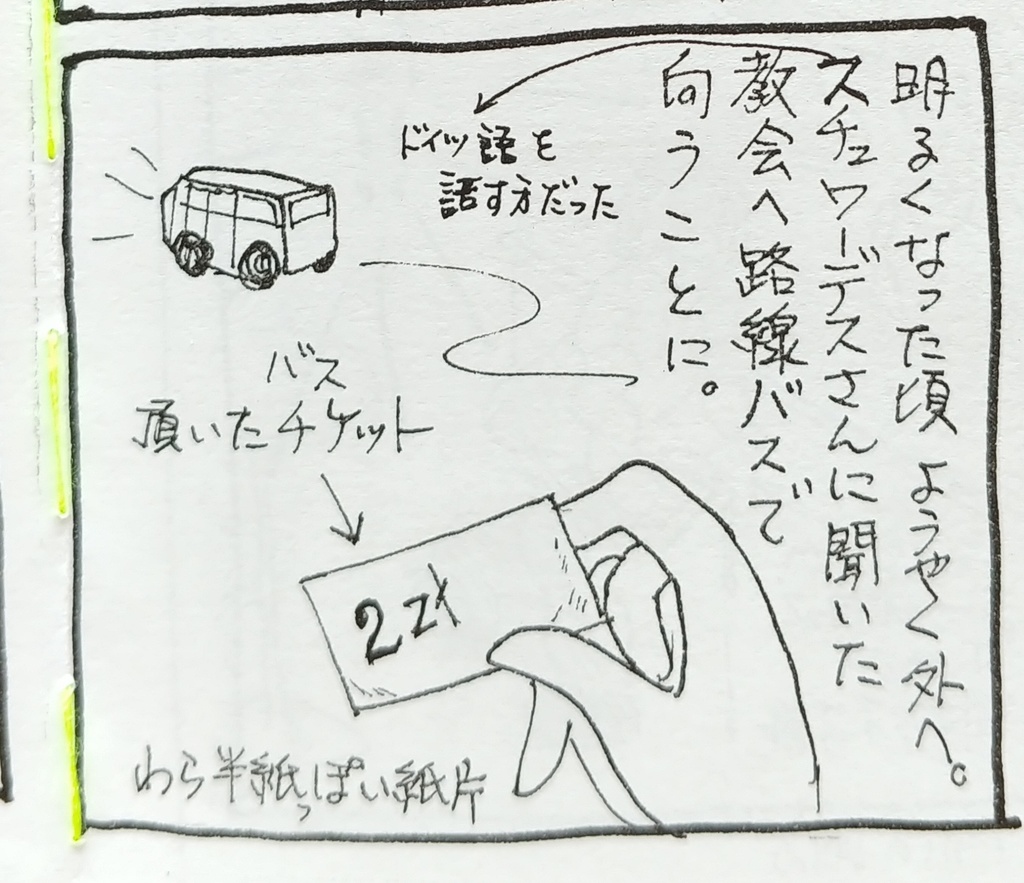 明るくなった頃 ようやく外へ。
スチュワーデスさんに聞いた
教会へ路線バスで
向うことに。
ドイツ語を
話す方だった
バス
頂いたチケット
2zł
わら半紙っぽい紙片